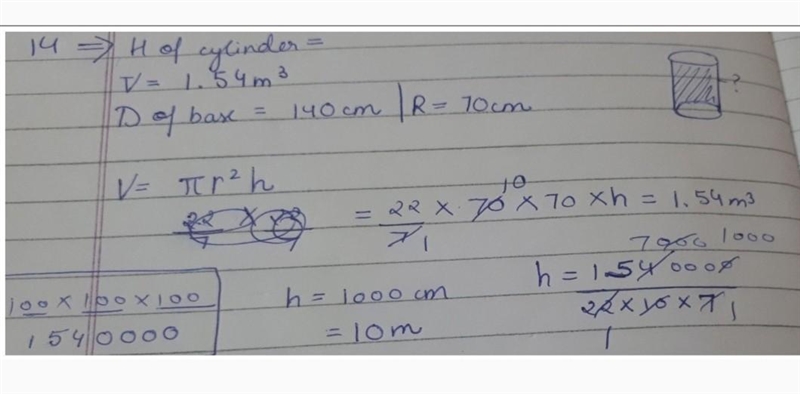 14 ⇒ H of cylinder =
V = 1.54 m³
D of base = 140 cm | R = 70 cm
?
V = πr²h
22/7 × 
= 22/7 1 × 70 10 × 70 × h = 1.54 m³
7000 1000
h = 1540000
22 × 10 × 7 1
1
100 × 100 × 100
1540000
h = 1000 cm
= 10 m